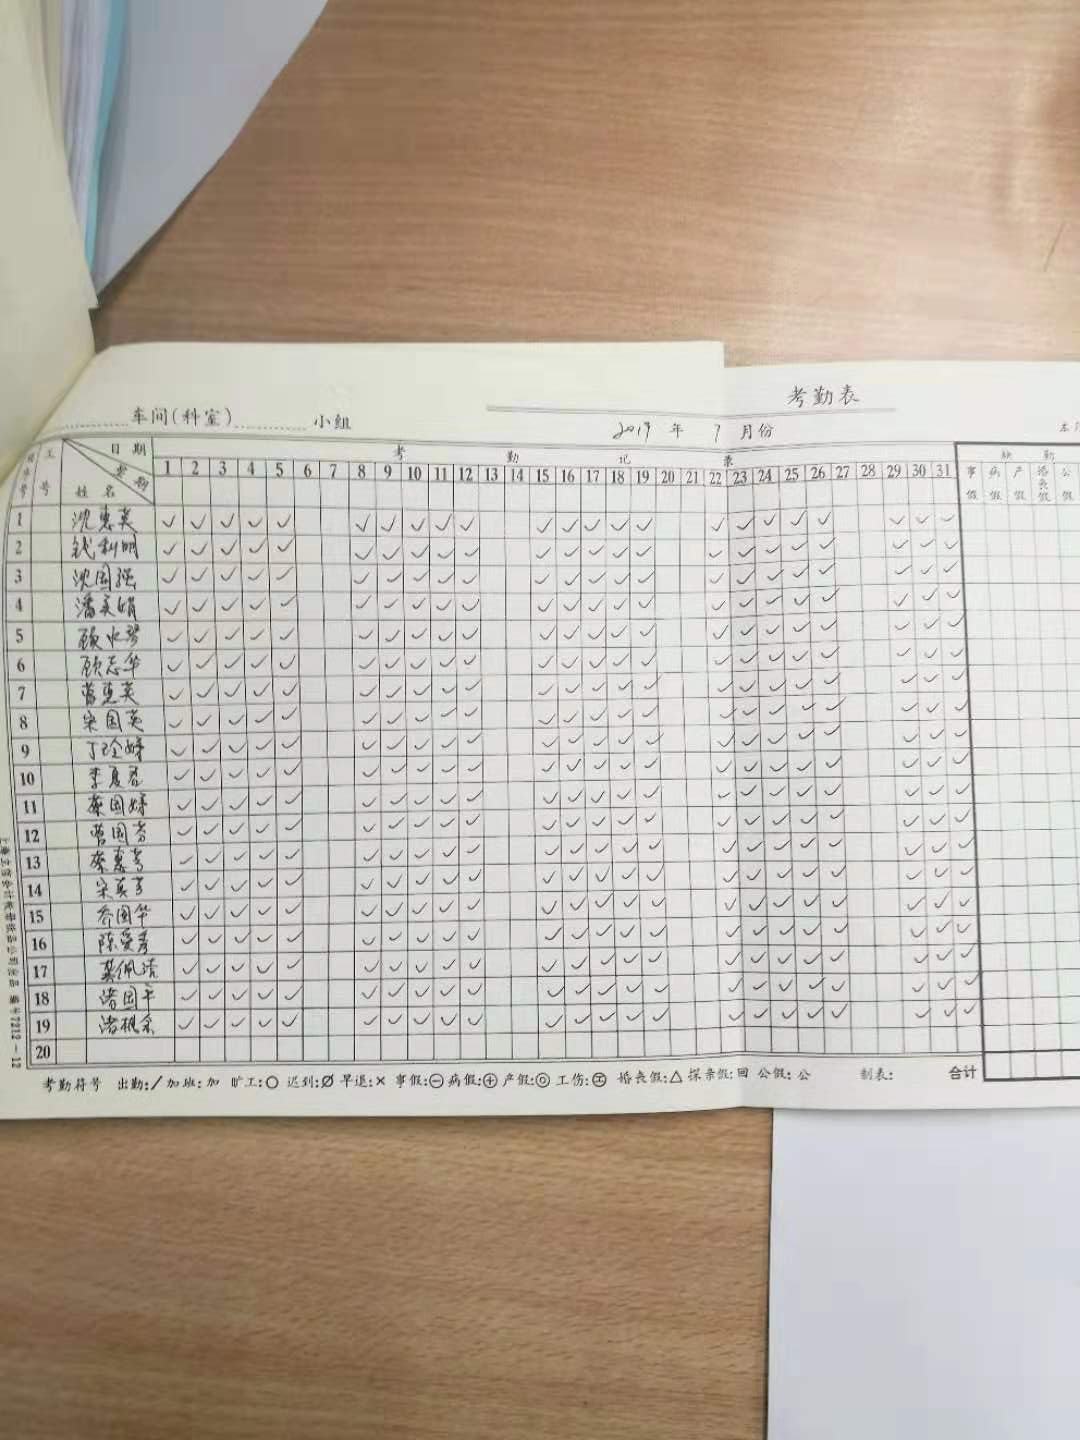 考勤表
车间(科室) 小组 2019 年 7 月份
工号 日期 星期 姓名 考勤记录 缺勤
1 2 3 4 5 6 7 8 9 10 11 12 13 14 15 16 17 18 19 20 21 22 23 24 25 26 27 28 29 30 31 事假 病假 产假 婚丧假 公假
1 沈惠英 ✓ ✓ ✓ ✓ ✓ ✓ ✓ ✓ ✓ ✓ ✓ ✓ ✓ ✓ ✓ ✓ ✓ ✓ ✓ ✓ ✓ ✓ ✓
2 钱利明 ✓ ✓ ✓ ✓ ✓ ✓ ✓ ✓ ✓ ✓ ✓ ✓ ✓ ✓ ✓ ✓ ✓ ✓ ✓ ✓ ✓ ✓ ✓
3 沈国强 ✓ ✓ ✓ ✓ ✓ ✓ ✓ ✓ ✓ ✓ ✓ ✓ ✓ ✓ ✓ ✓ ✓ ✓ ✓ ✓ ✓ ✓ ✓
4 潘美娟 ✓ ✓ ✓ ✓ ✓ ✓ ✓ ✓ ✓ ✓ ✓ ✓ ✓ ✓ ✓ ✓ ✓ ✓ ✓ ✓ ✓ ✓ ✓
5 顾水琴 ✓ ✓ ✓ ✓ ✓ ✓ ✓ ✓ ✓ ✓ ✓ ✓ ✓ ✓ ✓ ✓ ✓ ✓ ✓ ✓ ✓ ✓ ✓
6 顾志华 ✓ ✓ ✓ ✓ ✓ ✓ ✓ ✓ ✓ ✓ ✓ ✓ ✓ ✓ ✓ ✓ ✓ ✓ ✓ ✓ ✓ ✓ ✓
7 曹惠英 ✓ ✓ ✓ ✓ ✓ ✓ ✓ ✓ ✓ ✓ ✓ ✓ ✓ ✓ ✓ ✓ ✓ ✓ ✓ ✓ ✓ ✓ ✓
8 宋国英 ✓ ✓ ✓ ✓ ✓ ✓ ✓ ✓ ✓ ✓ ✓ ✓ ✓ ✓ ✓ ✓ ✓ ✓ ✓ ✓ ✓ ✓ ✓
9 丁 ✓ ✓ ✓ ✓ ✓ ✓ ✓ ✓ ✓ ✓ ✓ ✓ ✓ ✓ ✓ ✓ ✓ ✓ ✓ ✓ ✓ ✓ ✓
10 李夏 ✓ ✓ ✓ ✓ ✓ ✓ ✓ ✓ ✓ ✓ ✓ ✓ ✓ ✓ ✓ ✓ ✓ ✓ ✓ ✓ ✓ ✓ ✓
11 蔡国妹 ✓ ✓ ✓ ✓ ✓ ✓ ✓ ✓ ✓ ✓ ✓ ✓ ✓ ✓ ✓ ✓ ✓ ✓ ✓ ✓ ✓ ✓ ✓
12 曹国芬 ✓ ✓ ✓ ✓ ✓ ✓ ✓ ✓ ✓ ✓ ✓ ✓ ✓ ✓ ✓ ✓ ✓ ✓ ✓ ✓ ✓ ✓ ✓
13 蔡惠芳 ✓ ✓ ✓ ✓ ✓ ✓ ✓ ✓ ✓ ✓ ✓ ✓ ✓ ✓ ✓ ✓ ✓ ✓ ✓ ✓ ✓ ✓ ✓
14 宋英芳 ✓ ✓ ✓ ✓ ✓ ✓ ✓ ✓ ✓ ✓ ✓ ✓ ✓ ✓ ✓ ✓ ✓ ✓ ✓ ✓ ✓ ✓ ✓
15 乔国华 ✓ ✓ ✓ ✓ ✓ ✓ ✓ ✓ ✓ ✓ ✓ ✓ ✓ ✓ ✓ ✓ ✓ ✓ ✓ ✓ ✓ ✓ ✓
16 陈爱 ✓ ✓ ✓ ✓ ✓ ✓ ✓ ✓ ✓ ✓ ✓ ✓ ✓ ✓ ✓ ✓ ✓ ✓ ✓ ✓ ✓ ✓ ✓
17 佩 ✓ ✓ ✓ ✓ ✓ ✓ ✓ ✓ ✓ ✓ ✓ ✓ ✓ ✓ ✓ ✓ ✓ ✓ ✓ ✓ ✓ ✓ ✓
18 诸国平 ✓ ✓ ✓ ✓ ✓ ✓ ✓ ✓ ✓ ✓ ✓ ✓ ✓ ✓ ✓ ✓ ✓ ✓ ✓ ✓ ✓ ✓ ✓
19 诸根余 ✓ ✓ ✓ ✓ ✓ ✓ ✓ ✓ ✓ ✓ ✓ ✓ ✓ ✓ ✓ ✓ ✓ ✓ ✓ ✓ ✓ ✓ ✓
20
考勤符号 出勤:/ 加班:加 旷工:○ 迟到:Ø 早退:× 事假:⊖ 病假:⊕ 产假:◎ 工伤: 婚丧假:△ 探亲假:回 公假:公 制表: 合计
7212-12